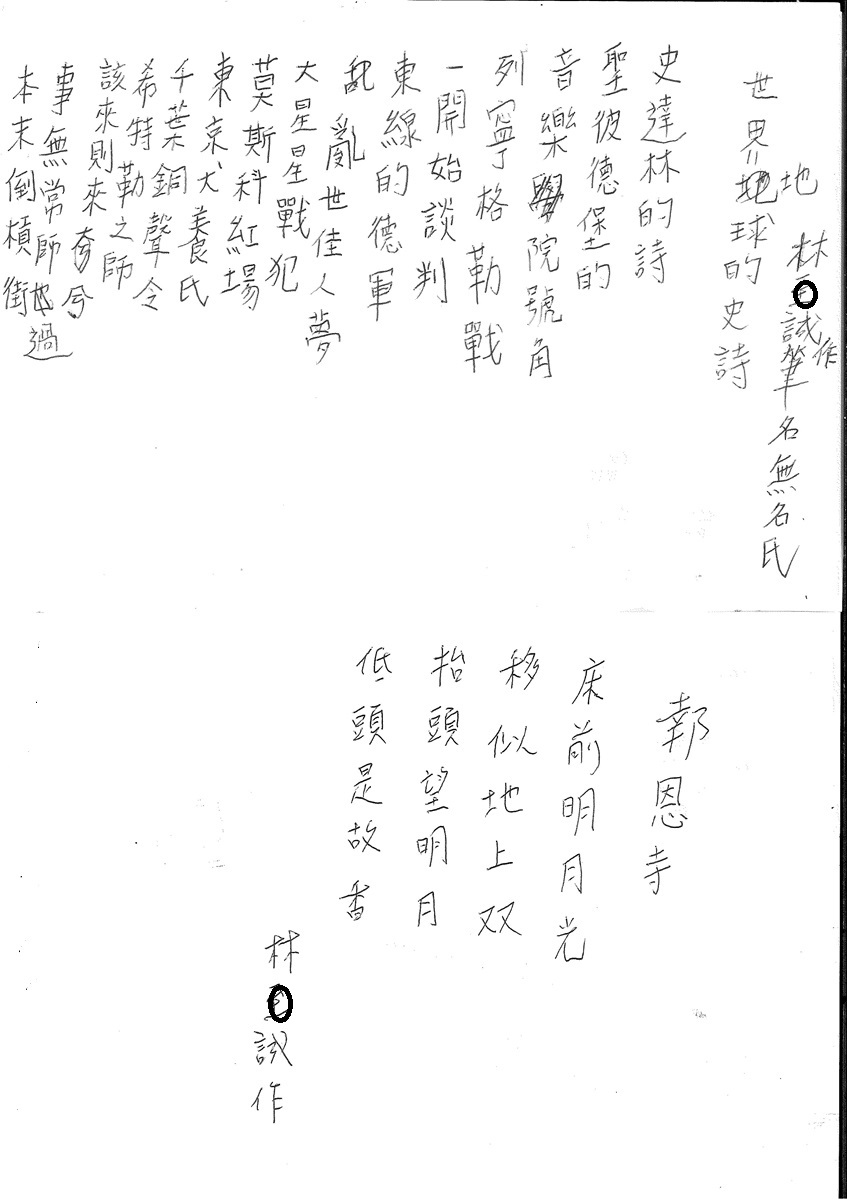 林 誠筆名無名氏
作
世界地球的史詩
地
史達林的詩
聖彼德堡的
音樂學院號角
列寧格勒戰
一開始談判
東線的德軍
亂亂世佳人夢
大星星戰犯
莫斯科紅場
東京犬養氏
千葉銅聲令
希特勒之師
該來則來兮兮
事無常師也過
本末倒楨街
報恩寺
床前明月光
移似地上双
抬頭望明月
低頭是故香
林 誠作